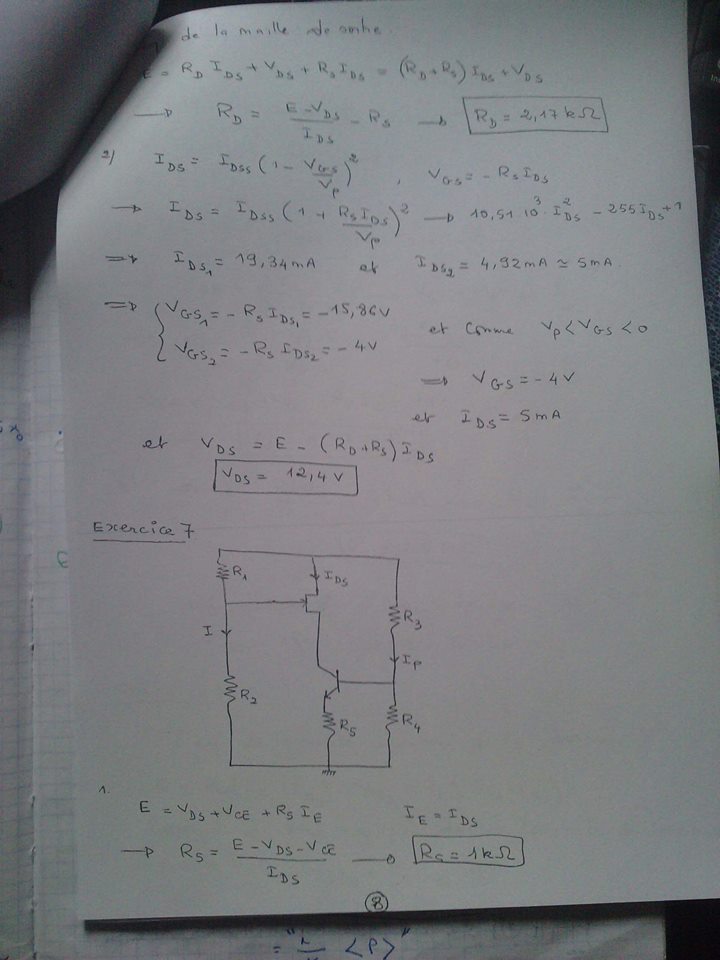 de la maille de sortie.
E = R_D I_DS + V_DS + R_S I_DS = (R_D + R_S) I_DS + V_DS
→ R_D = (E - V_DS)/I_DS - R_S → R_D = 2,17 kΩ
2) I_DS = I_DSS (1 - V_GS/V_p)², V_GS = - R_S I_DS
→ I_DS = I_DSS (1 + R_S I_DS/V_p)² → 10,51 10³ I²_DS - 255 I_DS + 1
⇒ I_DS1 = 19,34 mA et I_DS2 = 4,92 mA ≃ 5 mA.
⇒ { V_GS1 = - R_S I_DS1 = -15,86 V
V_GS2 = - R_S I_DS2 = - 4 V
et comme V_p < V_GS < 0
⇒ V_GS = - 4 V
et I_DS = 5 mA
et V_DS = E - (R_D + R_S) I_DS
V_DS = 12,4 V
Exercice 7
R1
I_DS
R3
I
I_p
R2
R5
R4
1.
E = V_DS + V_CE + R_5 I_E I_E = I_DS
→ R_5 = (E - V_DS - V_CE)/I_DS → R_5 = 1 kΩ
8
<P>